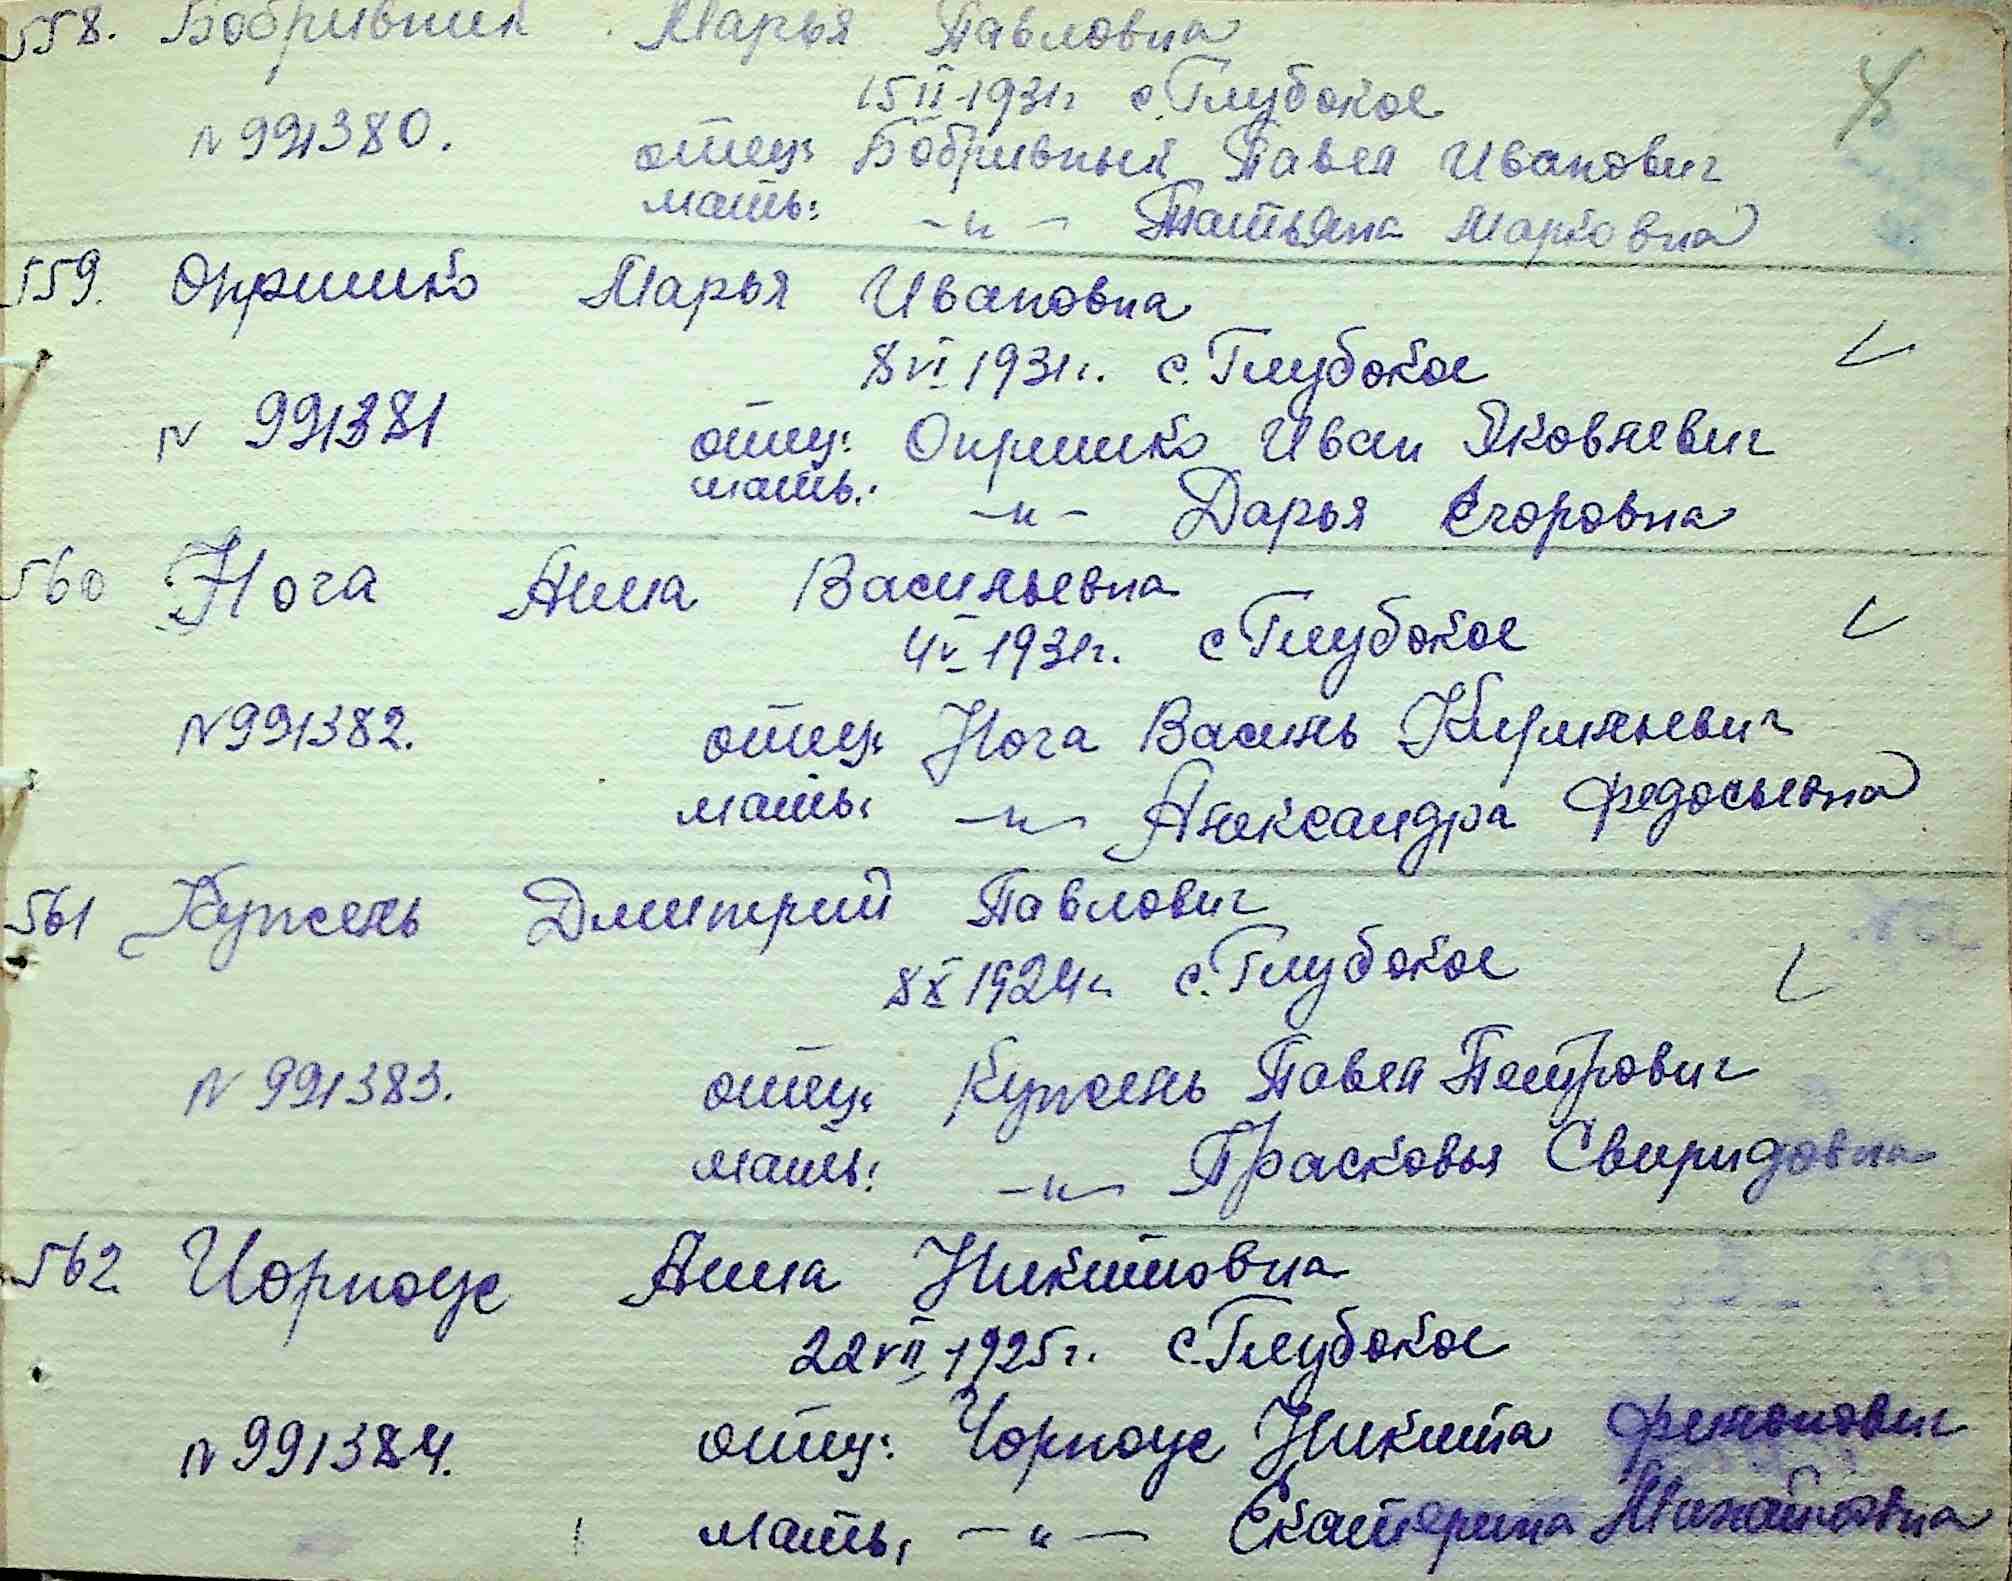 558. Бобривник Марья Павловна
15 II 1931г. с. Глубокое
N 991380.
отец: Бобривный Павел Иванович
мать: -"- Татьяна Марковна
559. Опришко Марья Ивановна
8 VI 1931г. с. Глубокое
N 991381
отец: Опришко Иван Яковлевич
мать: -"- Дарья Егоровна
560 Нога Анна Васильевна
4 V 1931г. с Глубокое
N 991382.
отец: Нога Василь Кирильевич
мать: -"- Александра Федосьевна
561 Кужель Дмитрий Павлович
8 X 1924г. с. Глубокое
N 991383.
отец: Кужель Павел Петрович
мать: -"- Прасковья Свиридовна
562 Чорноус Анна Никитовна
22 VII 1925г. с. Глубокое
N 991384.
отец: Чорноус Никита
мать: -"- Екатерина Михайловна